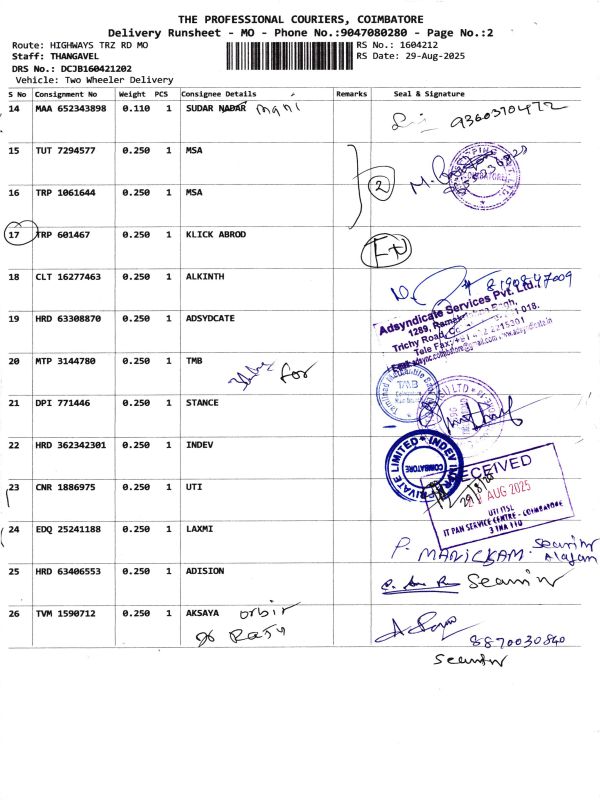 THE PROFESSIONAL COURIERS, COIMBATORE
Delivery Runsheet - MO - Phone No.:9047080280 - Page No.:2
Route: HIGHWAYS TRZ RD MO RS No.: 1604212
Staff: THANGAVEL RS Date: 29-Aug-2025
DRS No.: DCJB160421202
Vehicle: Two Wheeler Delivery
S No Consignment No Weight PCS Consignee Details Remarks Seal & Signature
14 MAA 652343898 0.110 1 SUDAR NADAR mani 9360370472
15 TUT 7294577 0.250 1 MSA
16 TRP 1061644 0.250 1 MSA 2
17 TRP 601467 0.250 1 KLICK ABROD
18 CLT 16277463 0.250 1 ALKINTH
19 HRD 63308870 0.250 1 ADSYDCATE
Adsyndicate Services Pvt. Ltd.,
Trichy Road,
20 MTP 3144780 0.250 1 TMB
for
TMB
21 DPI 771446 0.250 1 STANCE
22 HRD 362342301 0.250 1 INDEV
PRIVATE LIMITED INDEV
COIMBATORE
23 CNR 1886975 0.250 1 UTI
RECEIVED
AUG 2025
UTI ITSL
IT PAN SERVICE CENTRE - COIMBATORE
24 EDQ 25241188 0.250 1 LAXMI
P. MANICKAM
25 HRD 63406553 0.250 1 ADISION
26 TVM 1590712 0.250 1 AKSAYA orbit
Raju
8870030840